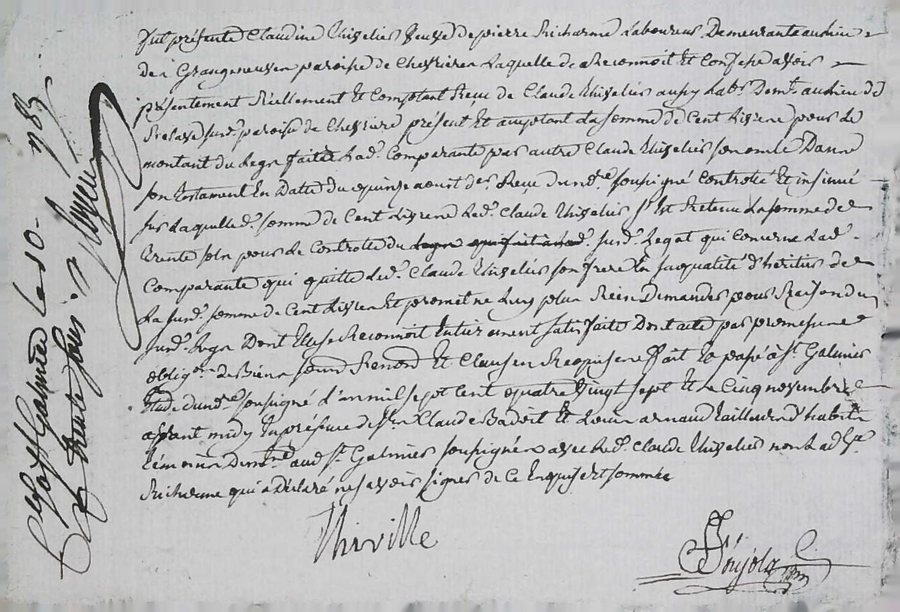 fut présente Claudine Thivelier veuve de pierre Richarme Laboureur Demeurante au lieu
de Grangeneuve en paroisse de Chevrière Laquelle de a Reconnoit Et Confessé avoir
présentement Réellement Et Comptant Reçu de Claude Thivelier aussy Labr Demt au lieu de
paroisse de Chevrière présent Et acceptant La Somme de Cent Livre pour Le
montant du Legs fait à Lad. Comparante par autre Claude Thivelier son oncle Dans
son testament En Datte du quinze aoust der Receu du nre soussigné Controllé Et insinué
sur Laquelle de somme de Cent Livre Led. Claude Thivelier s'est Retenu La somme de
trente sols pour Le Controlle du Legs qui fait à Lad. susd. Legat qui Concerne Lad.
Comparante qui quitte Led. Claude Thivelier son frère En sa qualité d'héritier de
La susd. somme de Cent Livre Et promet ne Luy plus Rien Demander pour Raison du
susd. Legs Dont Elle se Reconnoit Entièrement satisfaite Dont acte par promesse
obligon de Biens Et Clauses Requises fait Et passé à St. Galmier
Etude du nre soussigné L'an mil sept cent quatre vingt sept Et Le Cinq novembre
avant midy En présence de Sr Claude Badoit Et Louis arnaud tailleur d'habits
témoins Demt aud. St. Galmier soussignés avec Led. Claude Thivelier non Lad.
Richarme qui a Déclaré ne savoir signer de Ce Enquise Et sommée
Thiville
Clé à St Galmier Le 10 9bre 1787
R trente sols